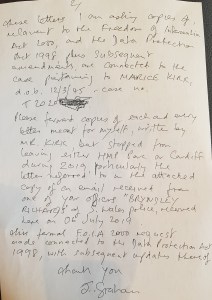 these letters I am asking copies of,
relevant to the Freedom of Information
Act 2000, and the Data Protection
Act 1998 plus subsequent
amendments are connected to the
case pertaining to MAURICE KIRK,
d.o.b. 12/3/45 - case no.
T 2020
Please forward copies of each and every
letter meant for myself, written by
Mr Kirk, but stopped from
leaving either HMP Parc or Cardiff
during 2019 particularly the
letter referred to in the attached
copy of an email received from
one of your officers
S. Wales police, received
here on 26 July 2019
this formal F.O.I.A 2000 request
made connected to the Data Protection Act
1998, with subsequent updates thereof
thank you
J. Graham